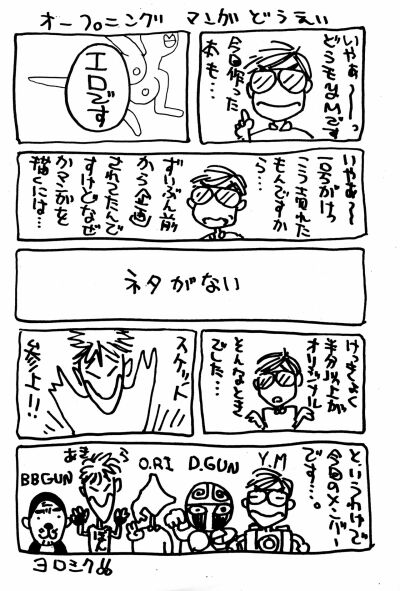 オープニング マンガ どうえい
いやぁ〜〜っ
どうもYMです
今回作った
本も…
エロです
いやぁ〜
1号がけっ
こう売れた
もんですか
ら…
ずいぶん前
から企画
されてたんで
すけどなぜ
かマンガを
描くには…
ネタがない
けっきょく
半分以上が
オリジナル
そんなとき
でした…
スケット
参上!!
というわけで
今回のメンバー
です…。
Y.M
D.GUN
O.RI
あきら
BBGUN
ヨロシク